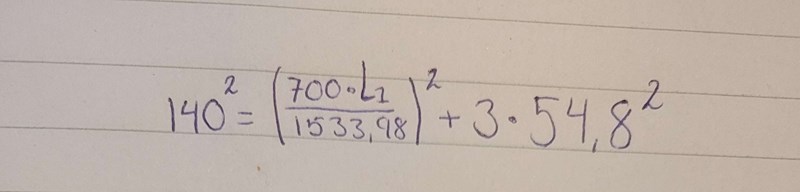 140² = (700·L₁/1533,98)² + 3·54,8²